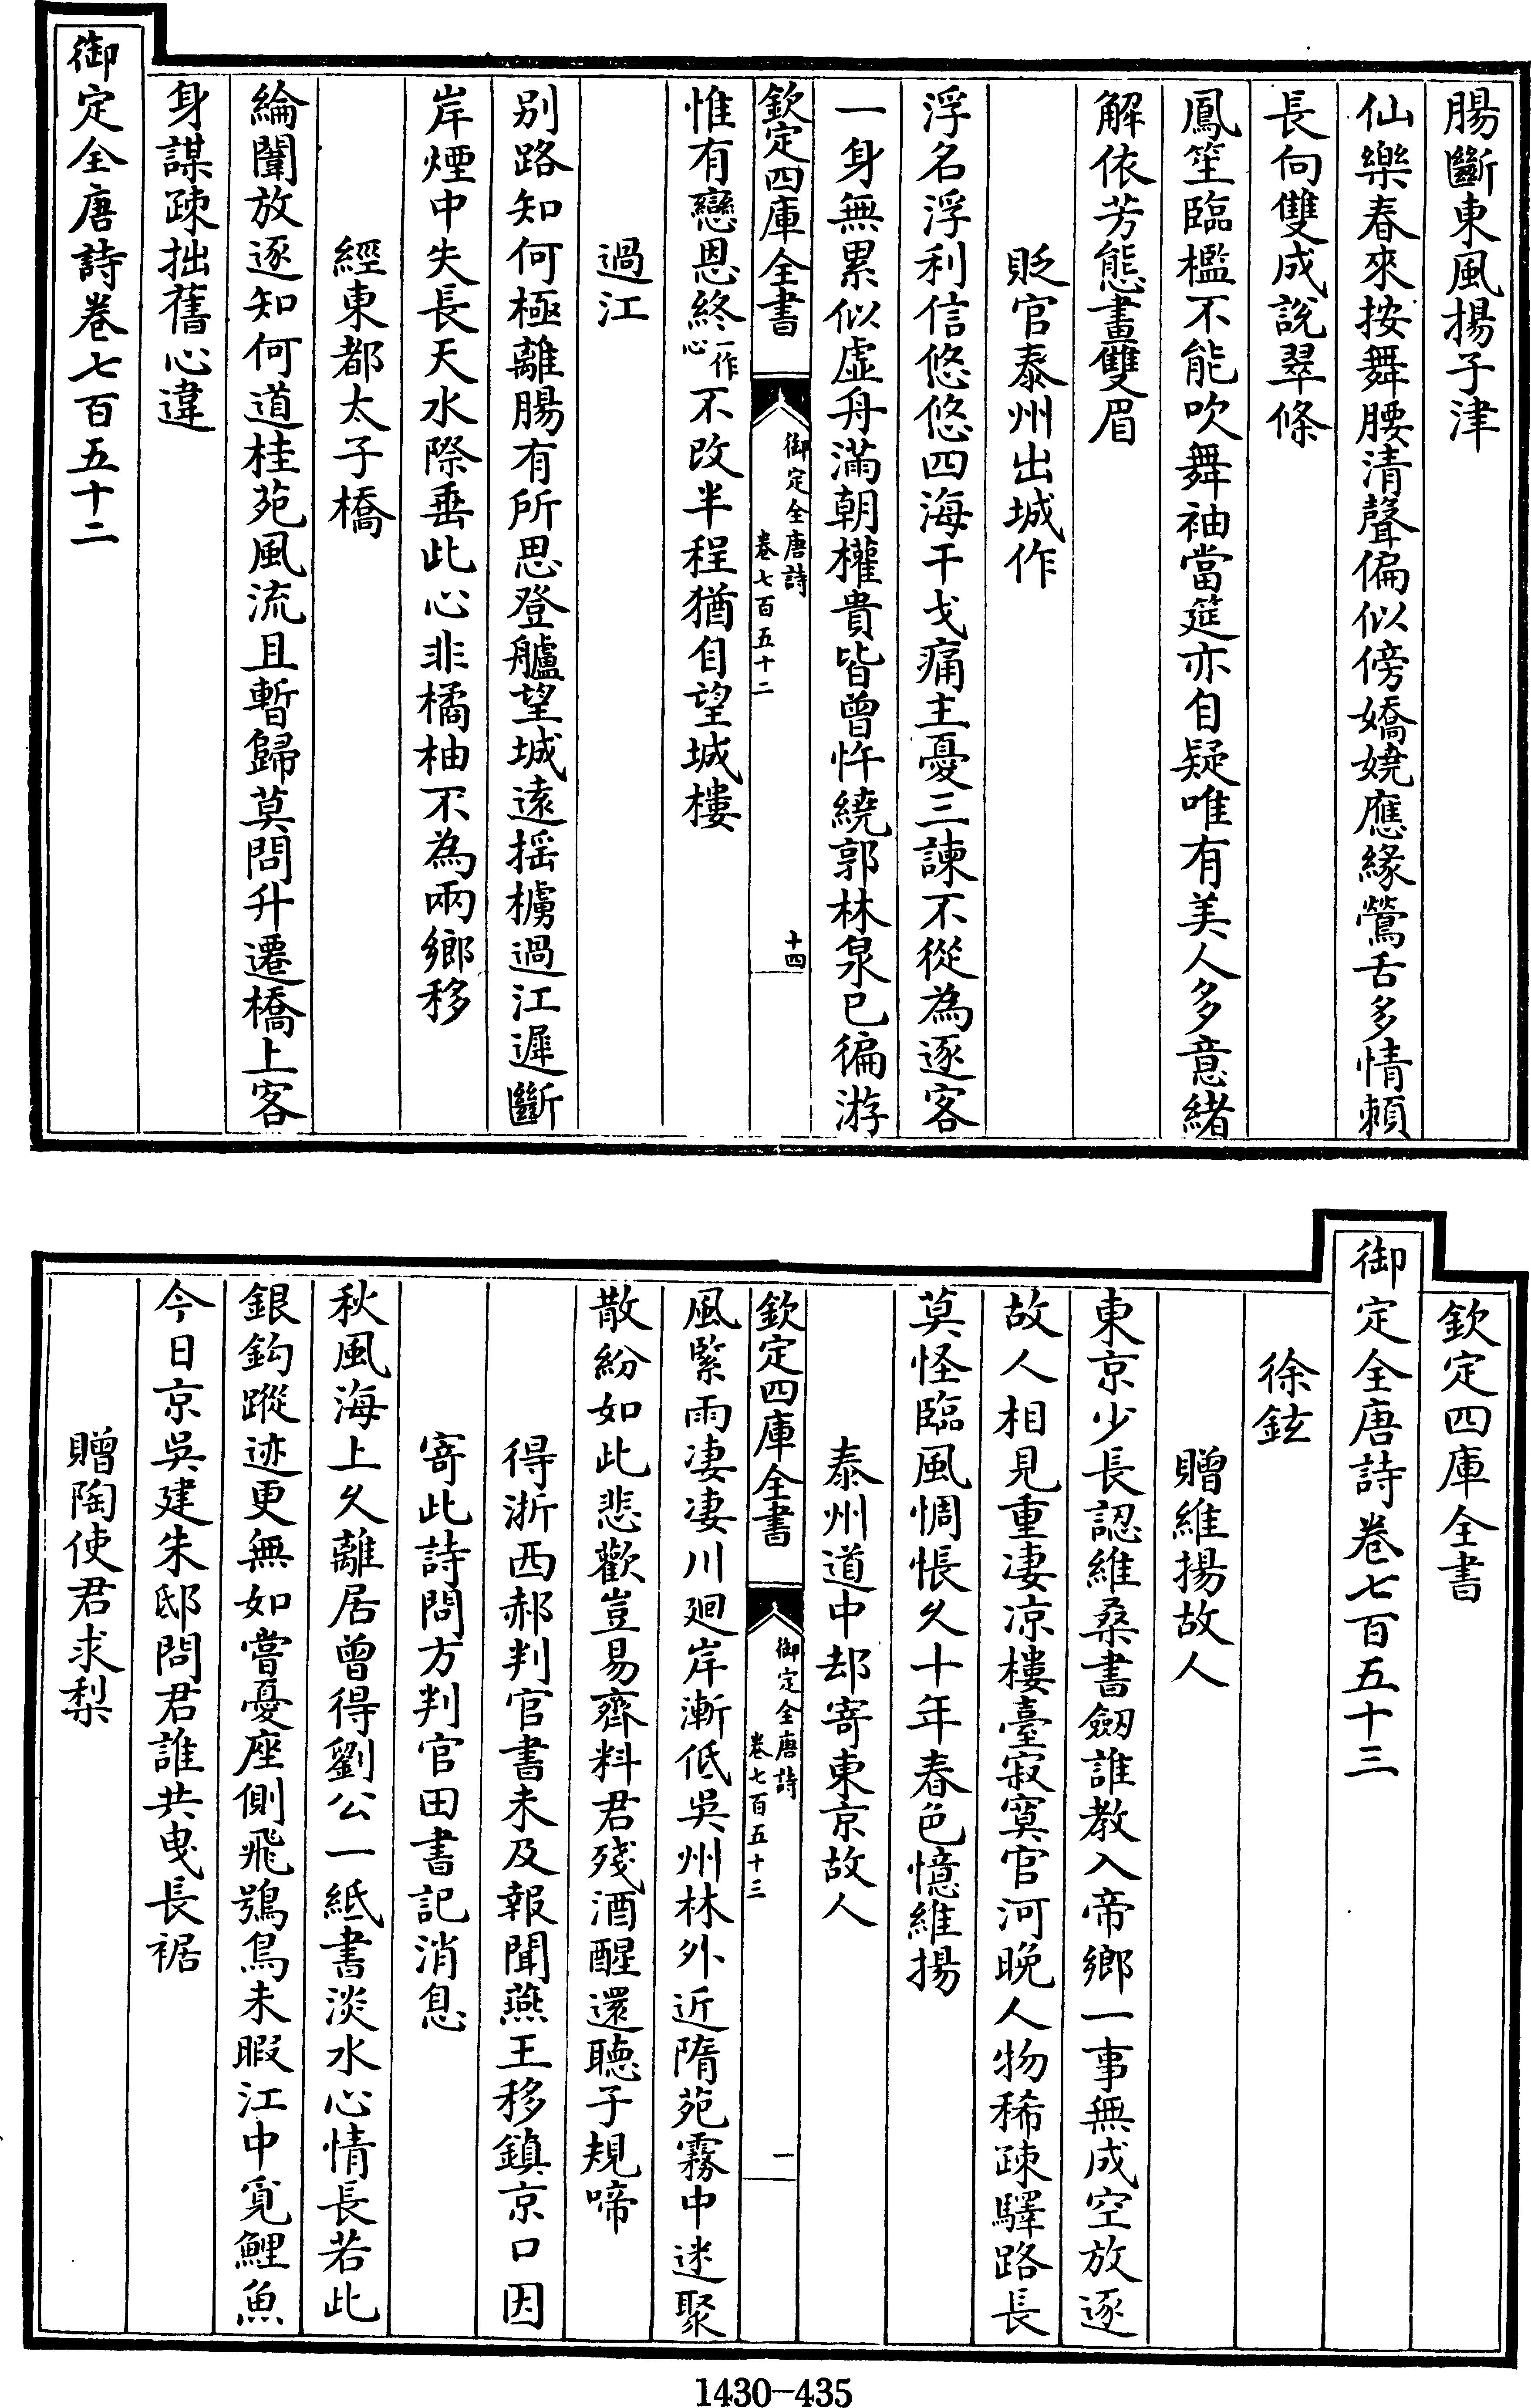 腸斷東風揚子津
仙樂春來按舞腰清聲偏似傍嬌嬈應緣鶯舌多情頼
長向雙成說翠條
鳳笙臨檻不能吹舞袖當筵亦自疑唯有美人多意緒
解依芳態畫雙眉
貶官泰州出城作
浮名浮利信悠悠四海干戈痛主憂三諫不從為逐客
一身無累似虛舟滿朝權貴皆曾忤繞郭林泉已徧游
欽定四庫全書
御定全唐詩
卷七百五十二
十四
惟有戀恩終一作心不改半程猶自望城樓
過江
别路知何極離腸有所思登艫望城遠揺櫓過江遲斷
岸煙中失長天水際垂此心非橘柚不為兩鄉移
經東都太子橋
綸闈放逐知何道桂苑風流且暫歸莫問升遷橋上客
身謀疎拙舊心違
御定全唐詩卷七百五十二
欽定四庫全書
御定全唐詩卷七百五十三
徐鉉
贈維揚故人
東京少長認維桑書劒誰教入帝鄉一事無成空放逐
故人相見重凄凉樓臺寂寞官河晚人物稀疎驛路長
莫怪臨風惆悵久十年春色憶維揚
泰州道中却寄東京故人
欽定四庫全書
御定全唐詩
卷七百五十三
一
風緊雨凄凄川廻岸漸低吳州林外近隋苑霧中迷聚
散紛如此悲歡豈易齊料君殘酒醒還聴子規啼
得浙西郝判官書未及報聞燕王移鎮京口因
寄此詩問方判官田書記消息
秋風海上久離居曾得劉公一紙書淡水心情長若此
銀鈎蹤迹更無如嘗憂座側飛鴞鳥未暇江中覓鯉魚
今日京吳建朱邸問君誰共曵長裾
贈陶使君求梨
1430-435